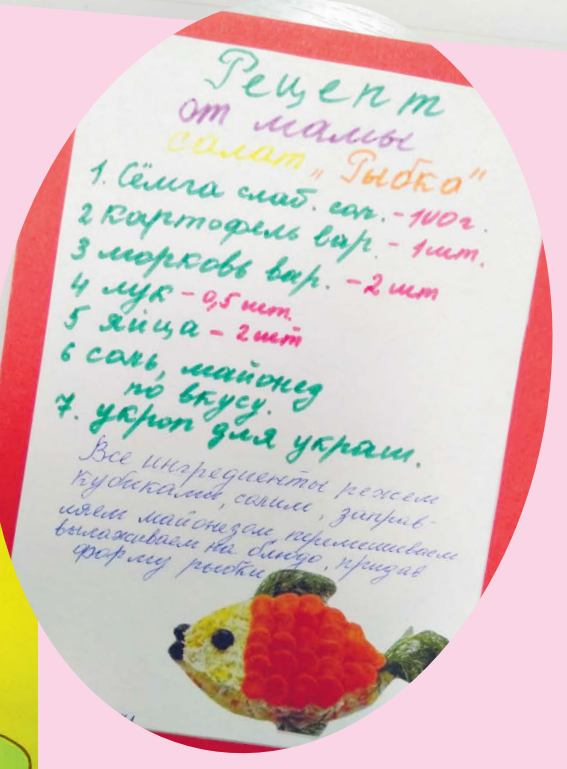 Рецепт
от мамы
салат „Рыбка"
1. Сёмга слаб. сол. - 100г.
2 картофель вар. - 1шт.
3 морковь вар. - 2 шт
4 лук - 0,5 шт.
5 яйца - 2шт
6 соль, майонез
по вкусу.
7. укроп для украш.
Все ингредиенты режем
кубиками, солим, заправ-
ляем майонезом, перемешиваем
вылаживаем на блюдо, придав
форму рыбки